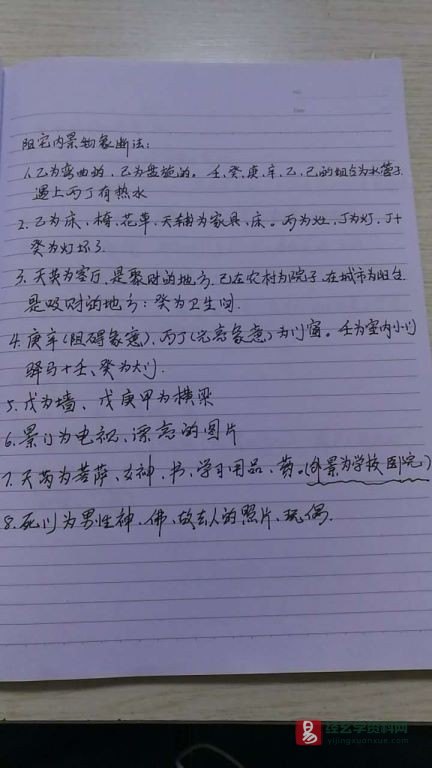 阳宅内景物象断法:
1、乙为弯曲的、己为盘旋的。壬、癸、庚、辛、乙、己的组合为水管子.
遇上丙丁有热水
2、乙为床、椅、花草、天辅为家具、床。丙为灶、丁为灯、丁+
癸为灯坏了.
3、天英为客厅、是聚财的地方、己在农村为院子、在城市为阳台.
是吸财的地方:癸为卫生间.
4、庚辛(阻碍象意)、丙丁(光亮象意)为门窗。壬为室内小门
驿马+壬、癸为大门.
5、戊为墙、戊庚甲为横梁
6、景门为电视、漂亮的图片
7、天芮为菩萨、女神、书、学习用品、药。(外景为学校医院)
8、死门为男性神、佛、故去人的照片、玩偶.
易 经玄学资料网
yijingxuanxue.com